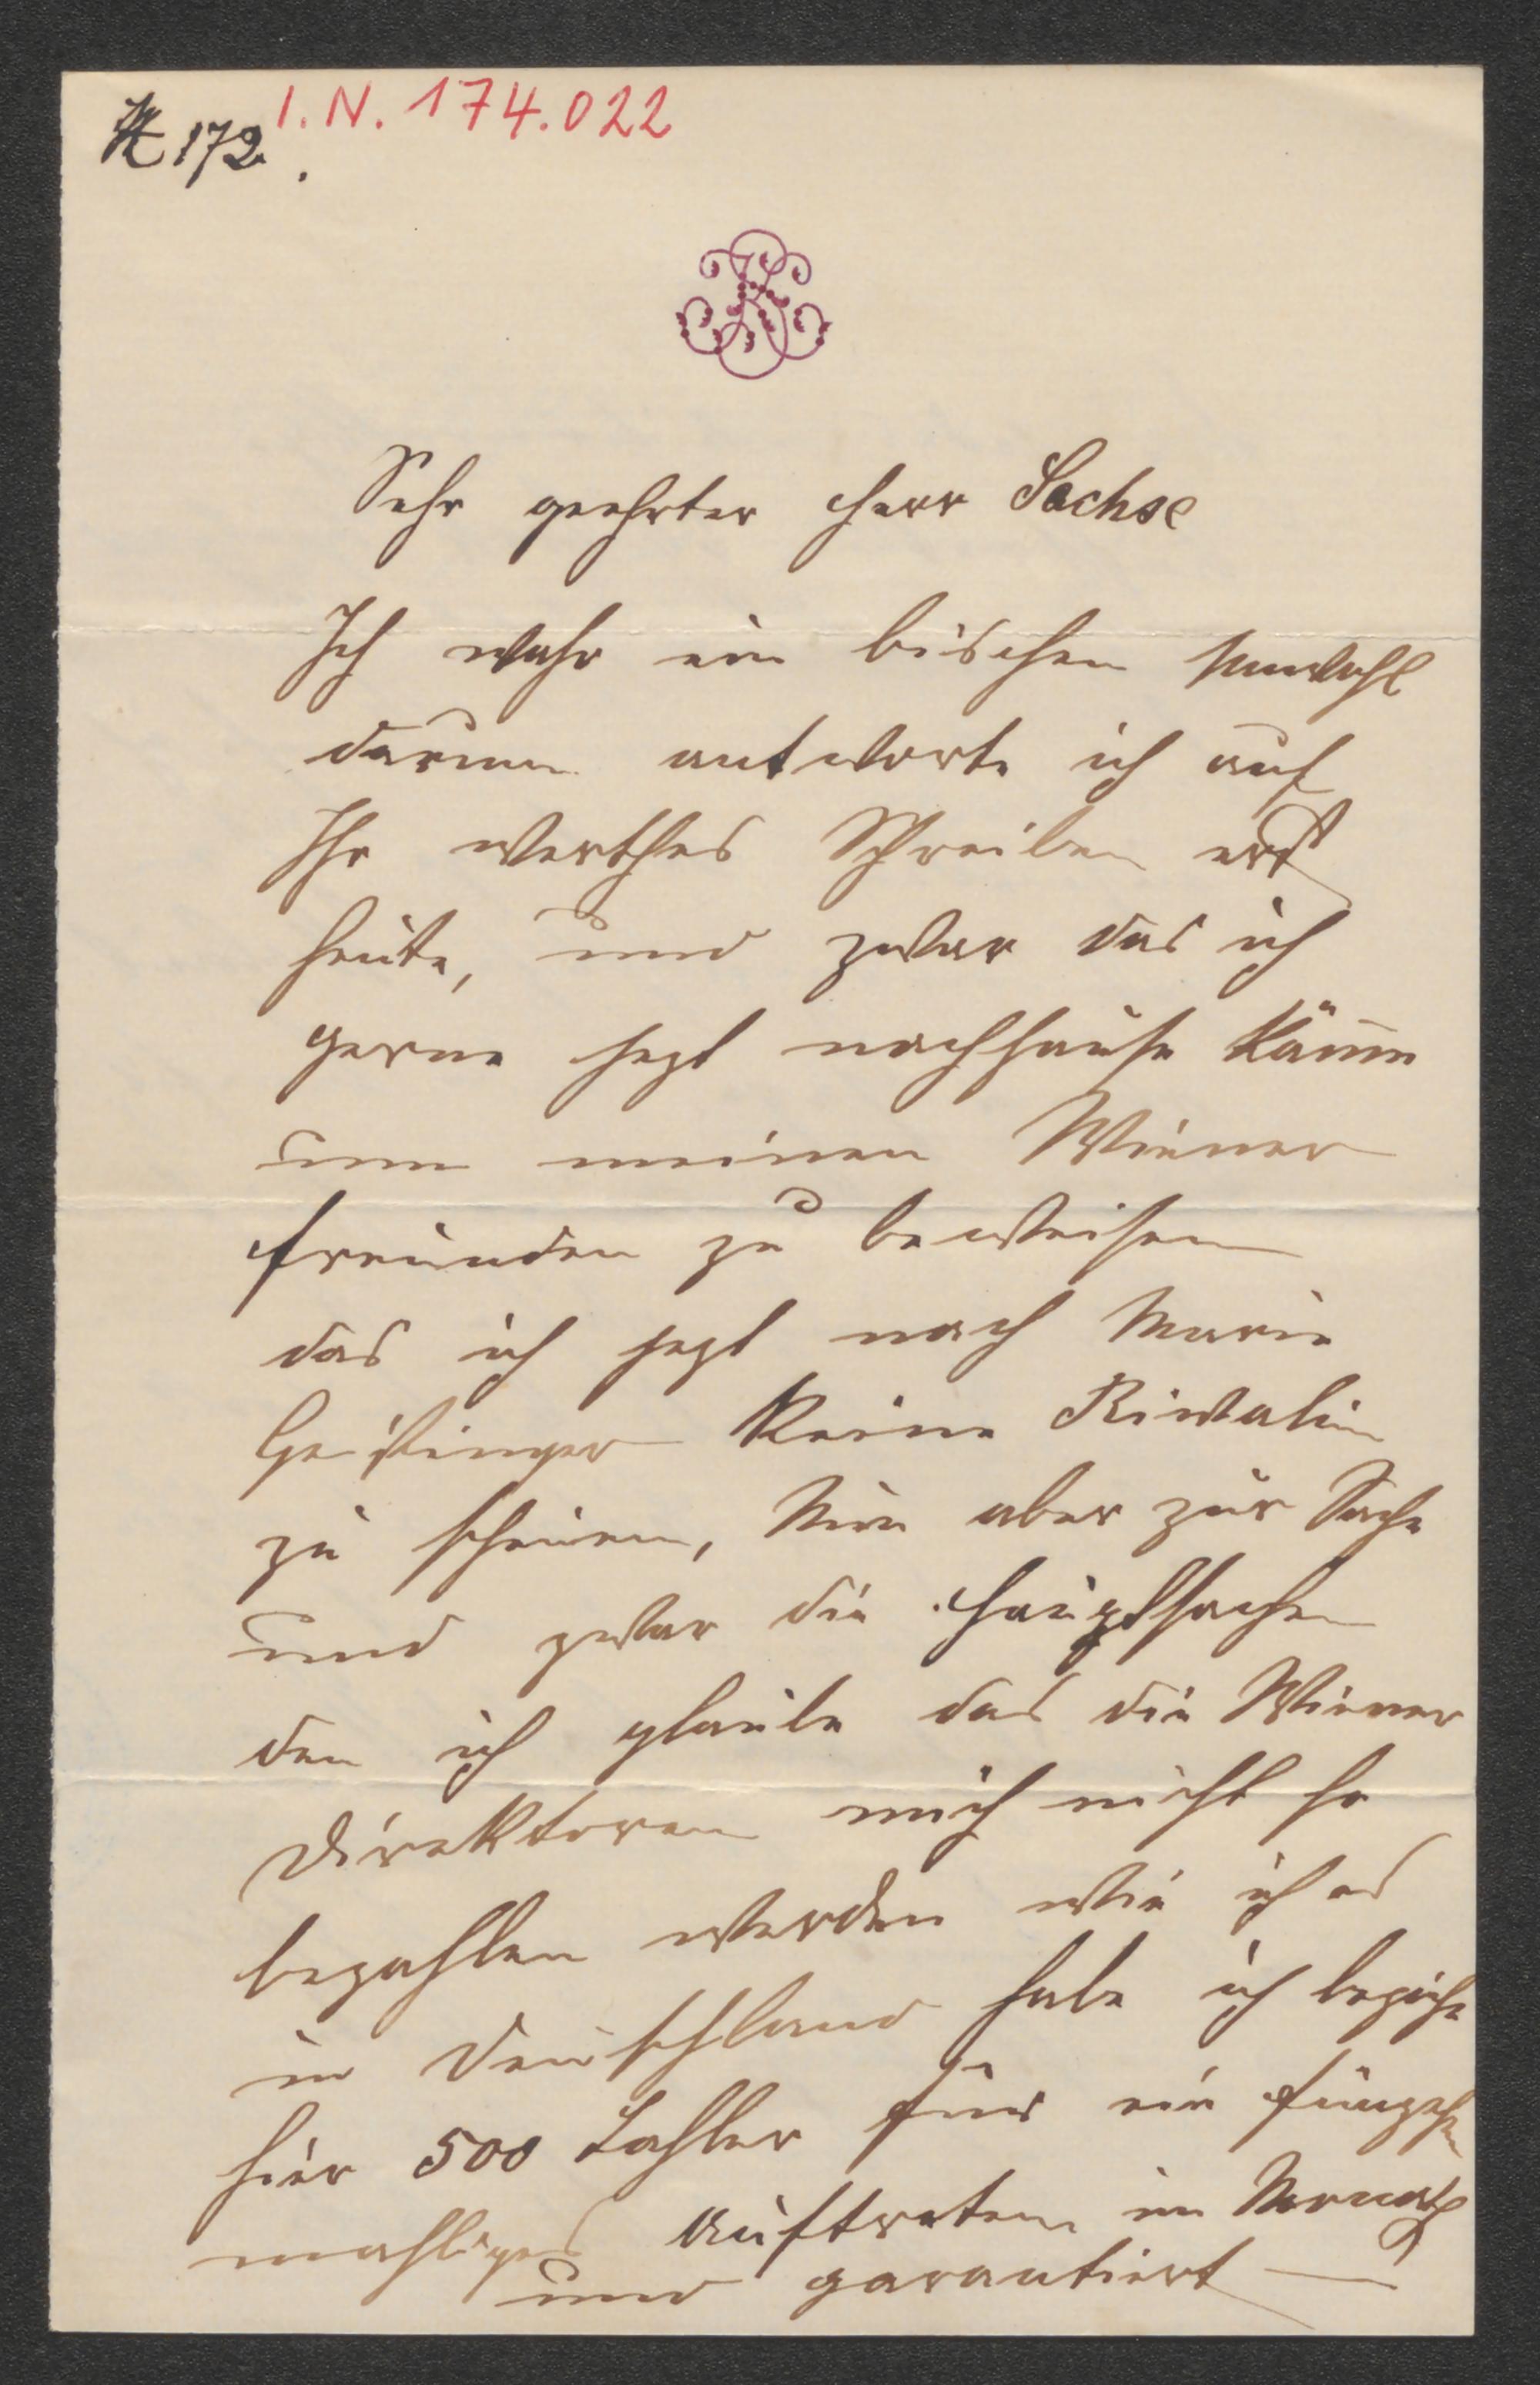 I.N. 174.022
172.
Sehr geehrter Herr Sachse
Ich wahr ein bischen unwohl
darum antworte ich auf
Ihr werthes Schreiben erst
heute, und zwar das ich
gerne jezt nachhause käme
um meinen Wiener
freunden zu beweisen
das ich jezt nach Marie
Geistinger keine Riwalin
zu scheuen, Nun aber zur Sache
und zwar die Hauptsache
den ich glaube das die Wiener
Direktoren mich nicht so
bezahlen werden wie ich es
in Deuschland habe ich beziehe
hier 500 Tahler für ein fünzehn
mahliges Auftreten im Monath
und garantiert —